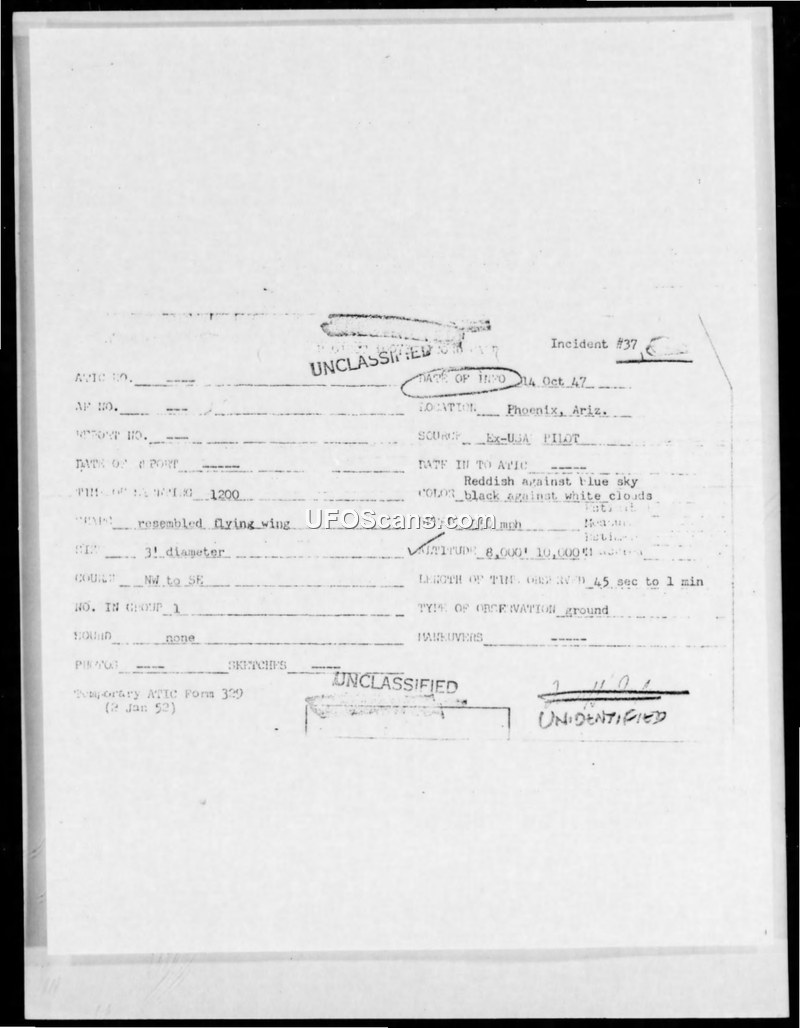 UNCLASSIFIED
Incident #37
ATIC NO. ----
DATE OF INFO 14 Oct 47
AF NO. ---
LOCATION Phoenix, Ariz.
REPORT NO. ---
SOURCE Ex-USA PILOT
DATE OF REPORT -----
DATE IN TO ATIC -----
TIME OF SIGHTING 1200
COLOR Reddish against blue sky
black against white clouds
SHAPE resembled flying wing
mph
SIZE 3' diameter
ALTITUDE 8,000' 10,000'
COURSE NW to SE
LENGTH OF TIME OBSERVED 45 sec to 1 min
NO. IN GROUP 1
TYPE OF OBSERVATION ground
SOUND none
MANEUVERS -----
PHOTOS ---- SKETCHES ----
Temporary ATIC Form 329
(2 Jan 52)
UNCLASSIFIED
UNIDENTIFIED
UFOScans.com